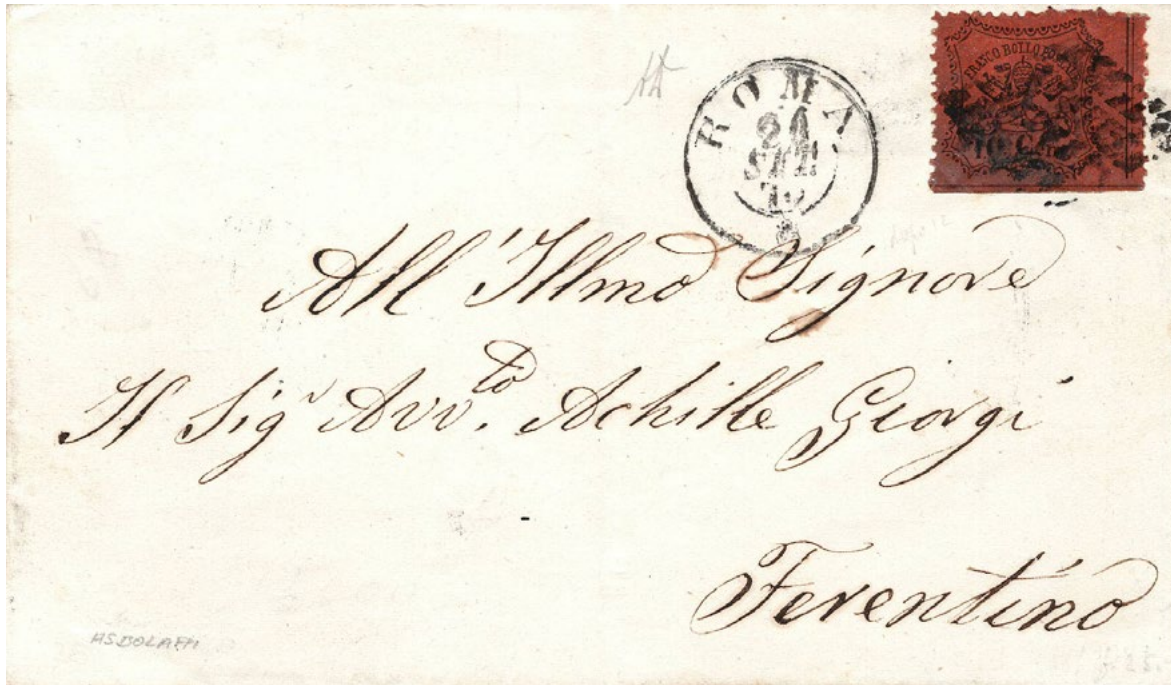 FRANCO BOLLO POSTALE
10 C
ROMA
24
SET
70
All' Illmo Signore
Il Sigr Avvto. Achille Giorgi
Ferentino